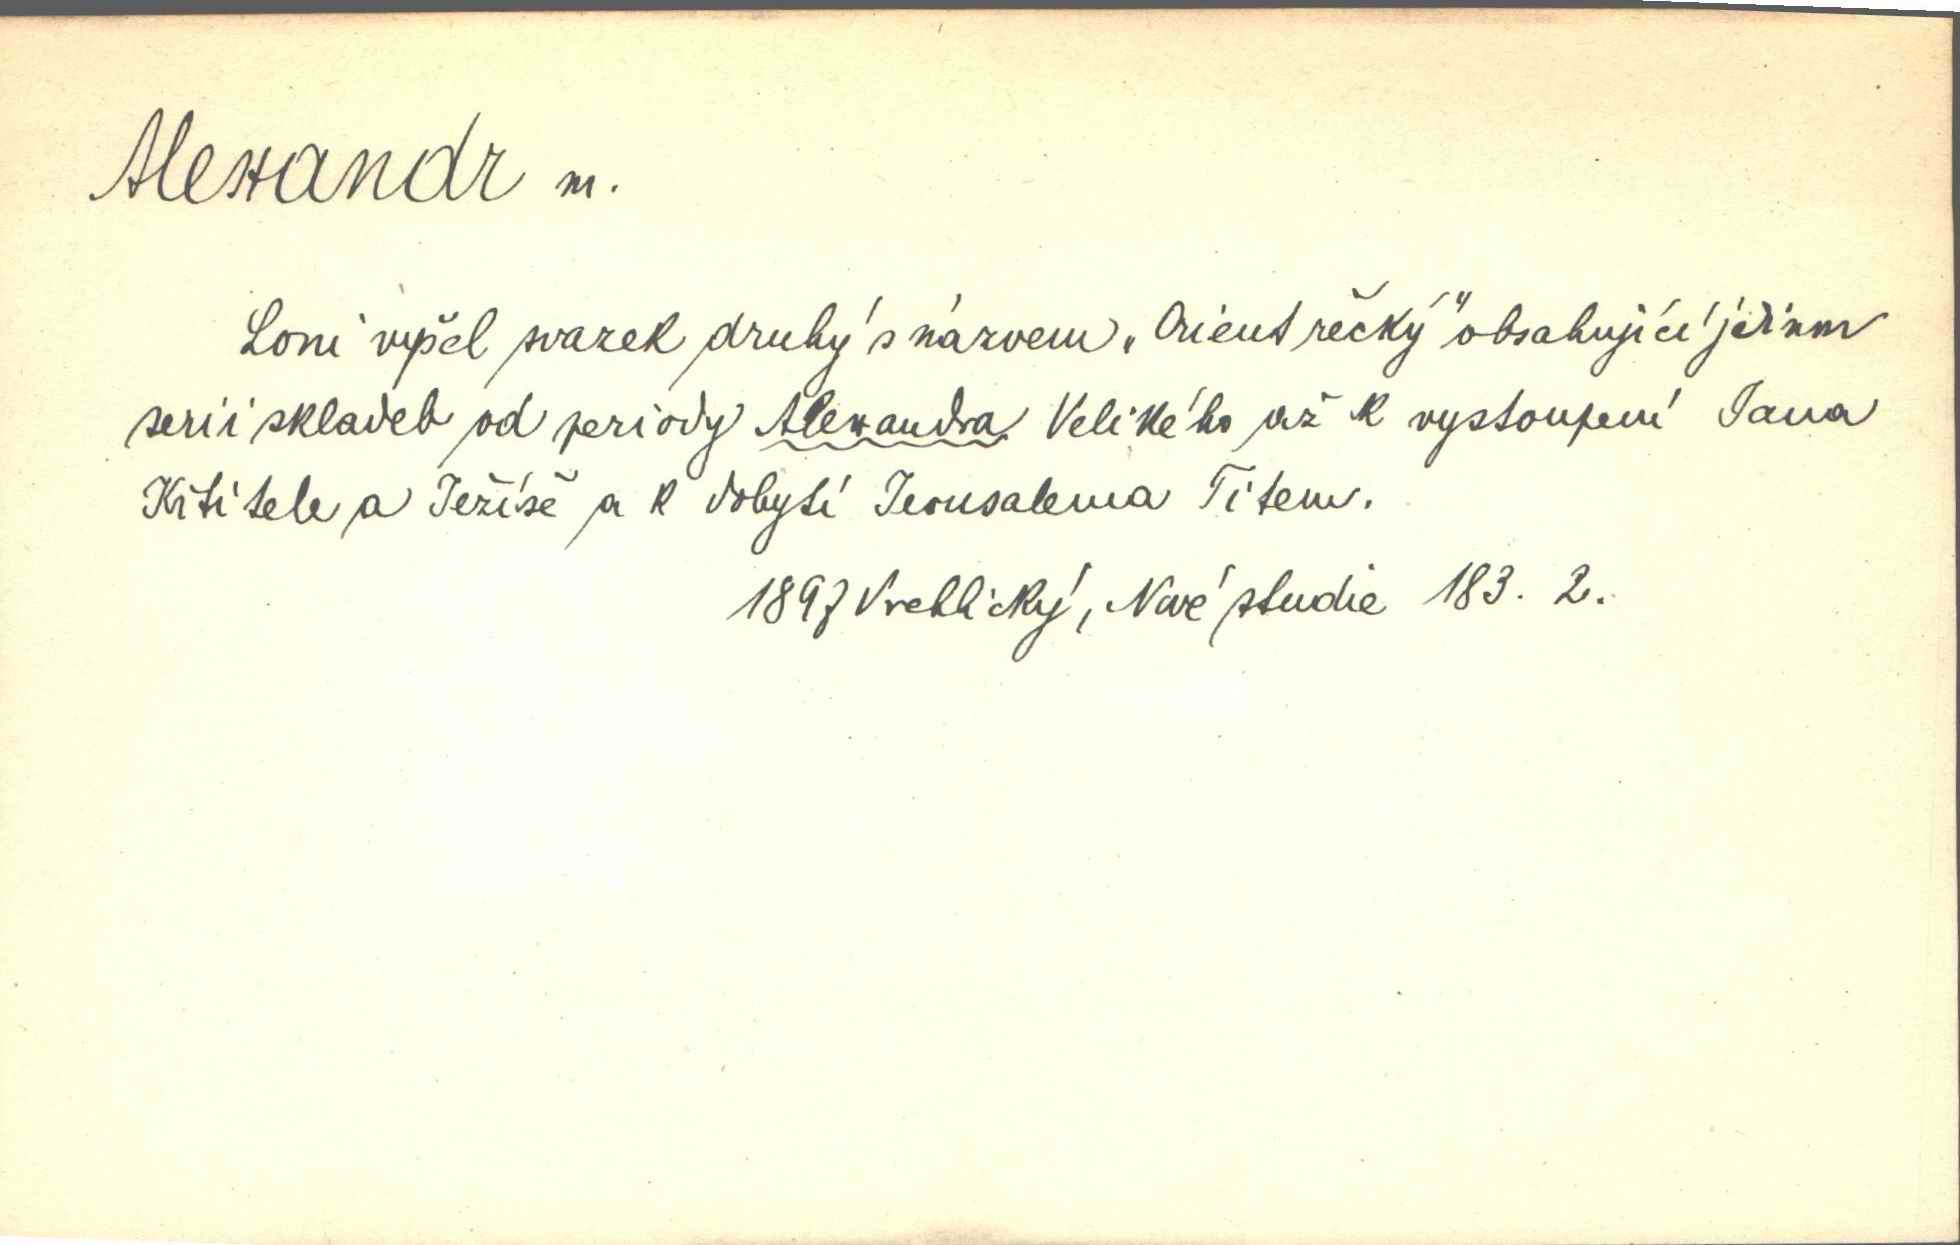 Alexandr m.
Loni vyšel svazek druhý s názvem „Orient řečký" obsahující jedinou
serii skladeb od periody Alexandra Velikého až k vystoupení Jana
Křtitele a Ježíše a k dobytí Jerusalema Titem.
1897 Vrchlický, Nové studie 183. 2.